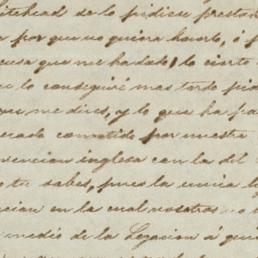 Whitehead de lo pidiese prestado
a por que no quiera hacerlo, ó p
cusa que me ha dado, lo cierto
lo conseguiré mas tarde
que me dices, y lo que ha pa
cado cometido por nuestra
vencion inglesa con la del
tu sabes, pues la unica
cion en la cual nosotros no
medio de la Legacion á qui